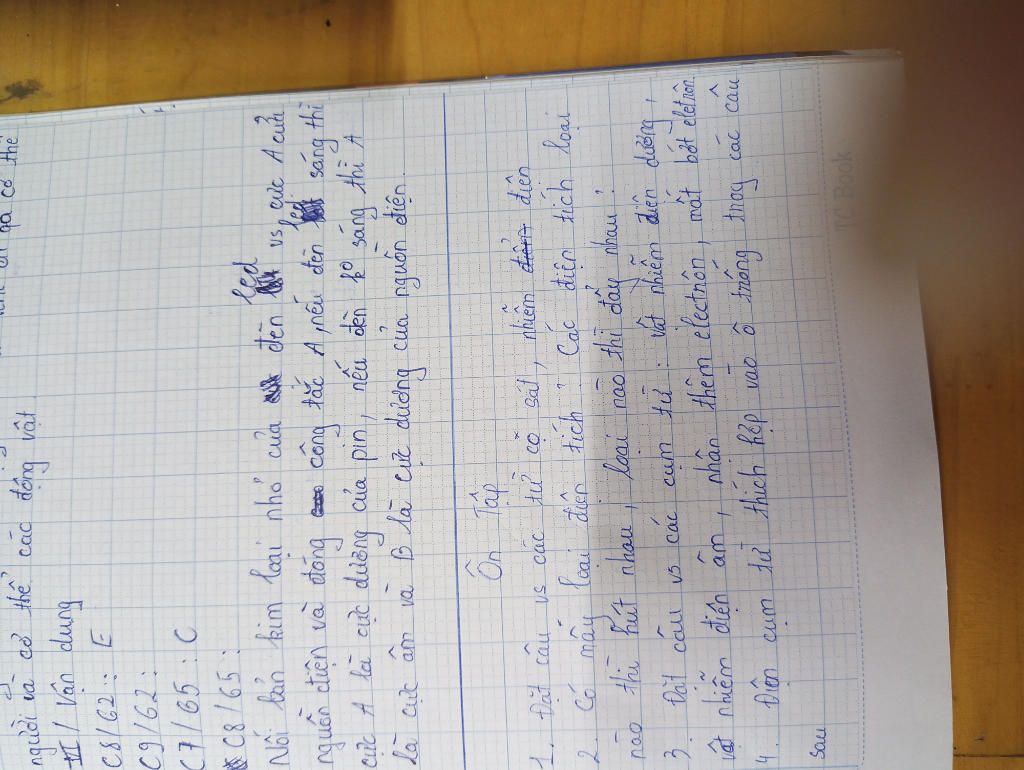 người và cơ thể các động vật.
VI / Vận dụng
C8/62 : E
C9/62 :
C7/65 : C
C8/65 :
Nối bản kim loại nhỏ của đèn led vs cực A của
nguồn điện và đóng công tắc A, nếu đèn led sáng thì
cực A là cực dương của pin, nếu đèn ko sáng thì A
là cực âm và B là cực dương của nguồn điện.
Ôn Tập
1. Đặt câu vs các từ cọ sát, nhiễm điện
2. Có mấy loại điện tích? Các điện tích loại
nào thì hút nhau, loại nào thì đẩy nhau?
3. Đặt câu vs các cụm từ : vật nhiễm điện dương,
vật nhiễm điện âm, nhận thêm electron, mất bớt eletrôn
4. Điền cụm từ thích hợp vào ô trống trong các câu
sau
TC Book